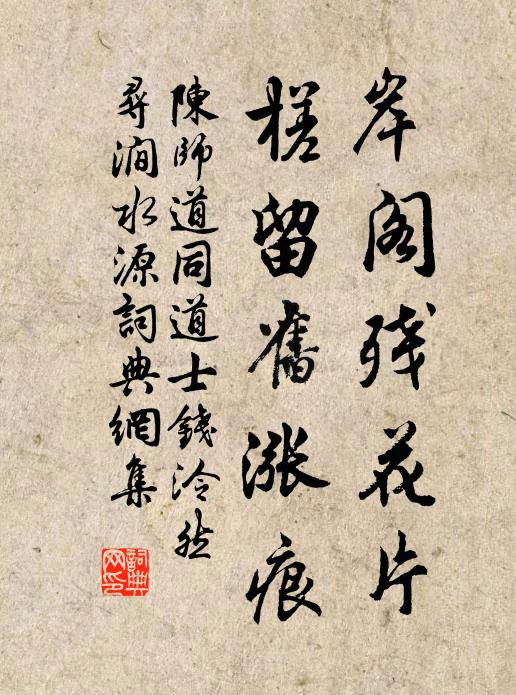 岸阁残花片
槎留舊漲痕
陳師道同道士錢泠然
尋澗水源詞典網集
詞典
网印